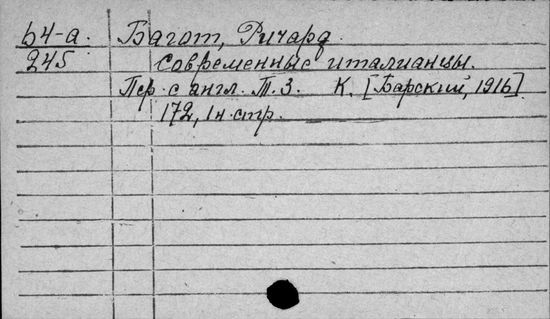 Б4-а. Багот, Ричард.
245 Современные италианцы.
Пер. с англ. Т. З. К. [Барский, 1916].
172, 1 н. стр.